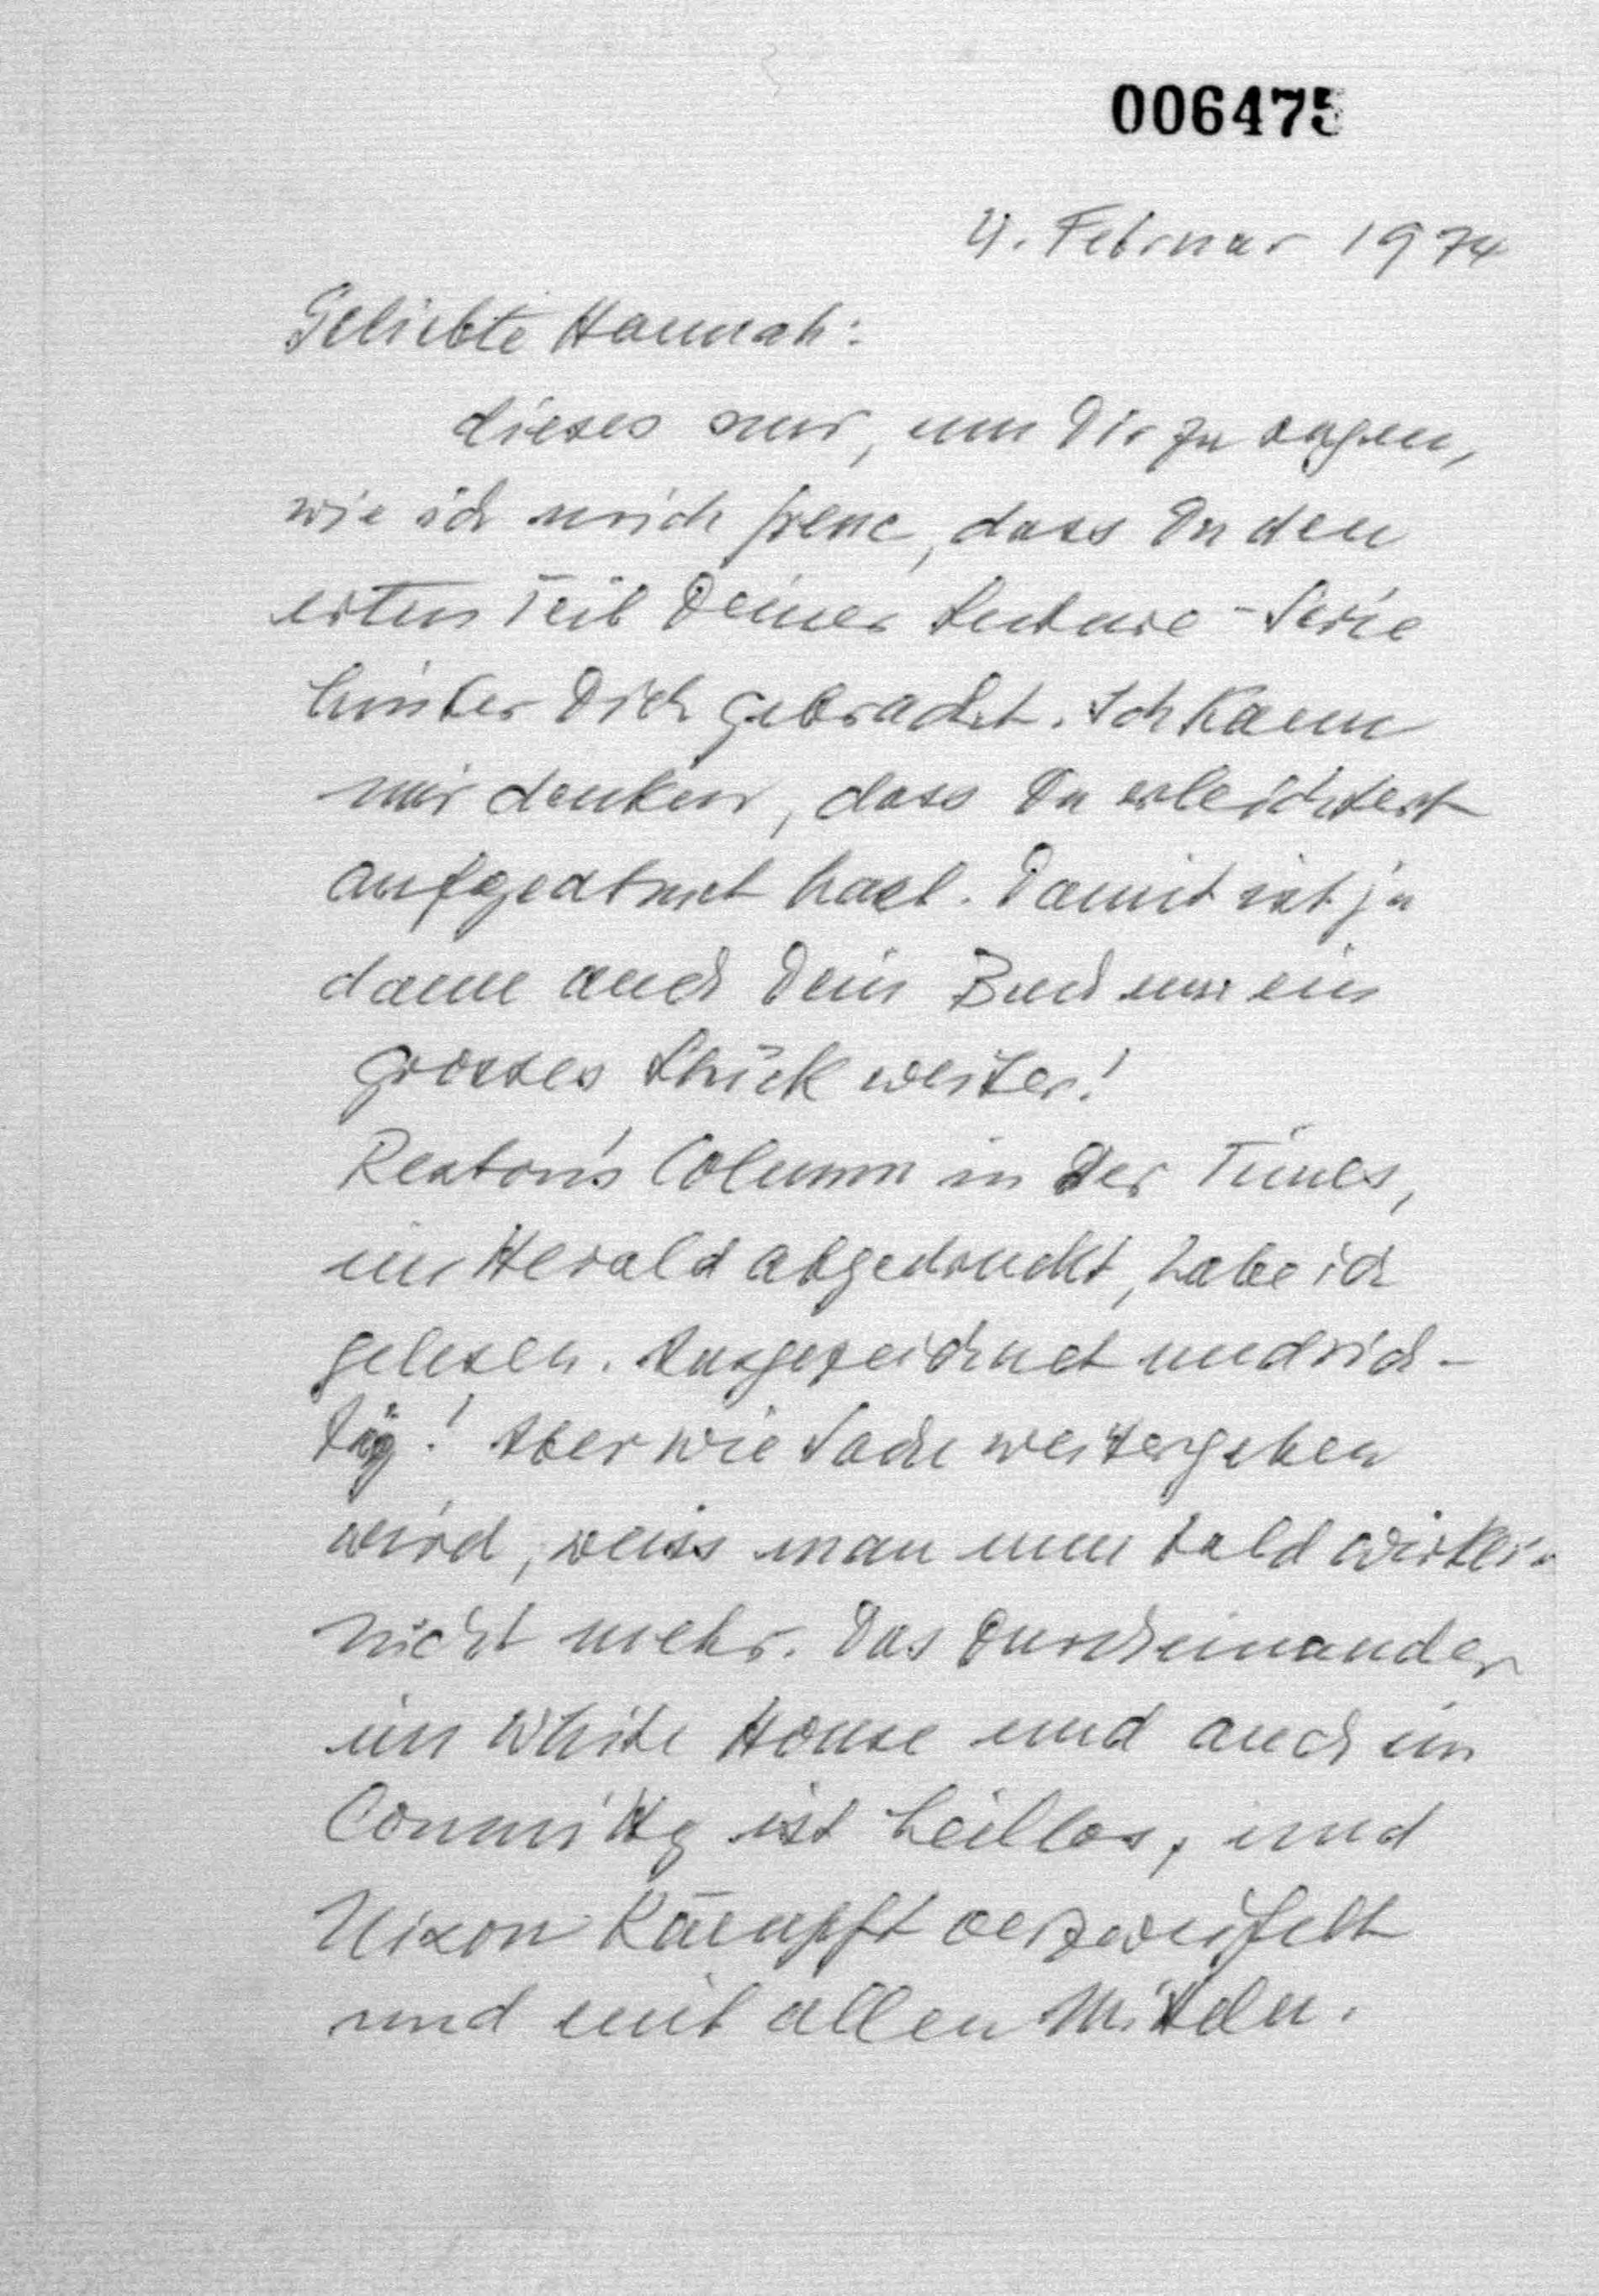 006475
4. Februar 1974
Geliebte Hannah:
dieses nur, um Dir zu sagen,
wie ich mich freue, dass Du den
ersten Teil Deiner Lecture-Serie
hinter Dich gebracht. Ich kann
mir denken, dass Du erleichtert
aufgeatmet hast. Damit ist ja
dann auch Dein Buch um ein
grosses Stück weiter!
Reston's Column in der Times,
im Herald abgedruckt, habe ich
gelesen. Ausgezeichnet und rich-
tig! Aber wie Sache weitergehen
wird, weiss man nun bald
nicht mehr. Das Durcheinander
im White House und auch im
ist heillos, und
Nixon kämpft verzweifelt
und mit allen Mitteln.